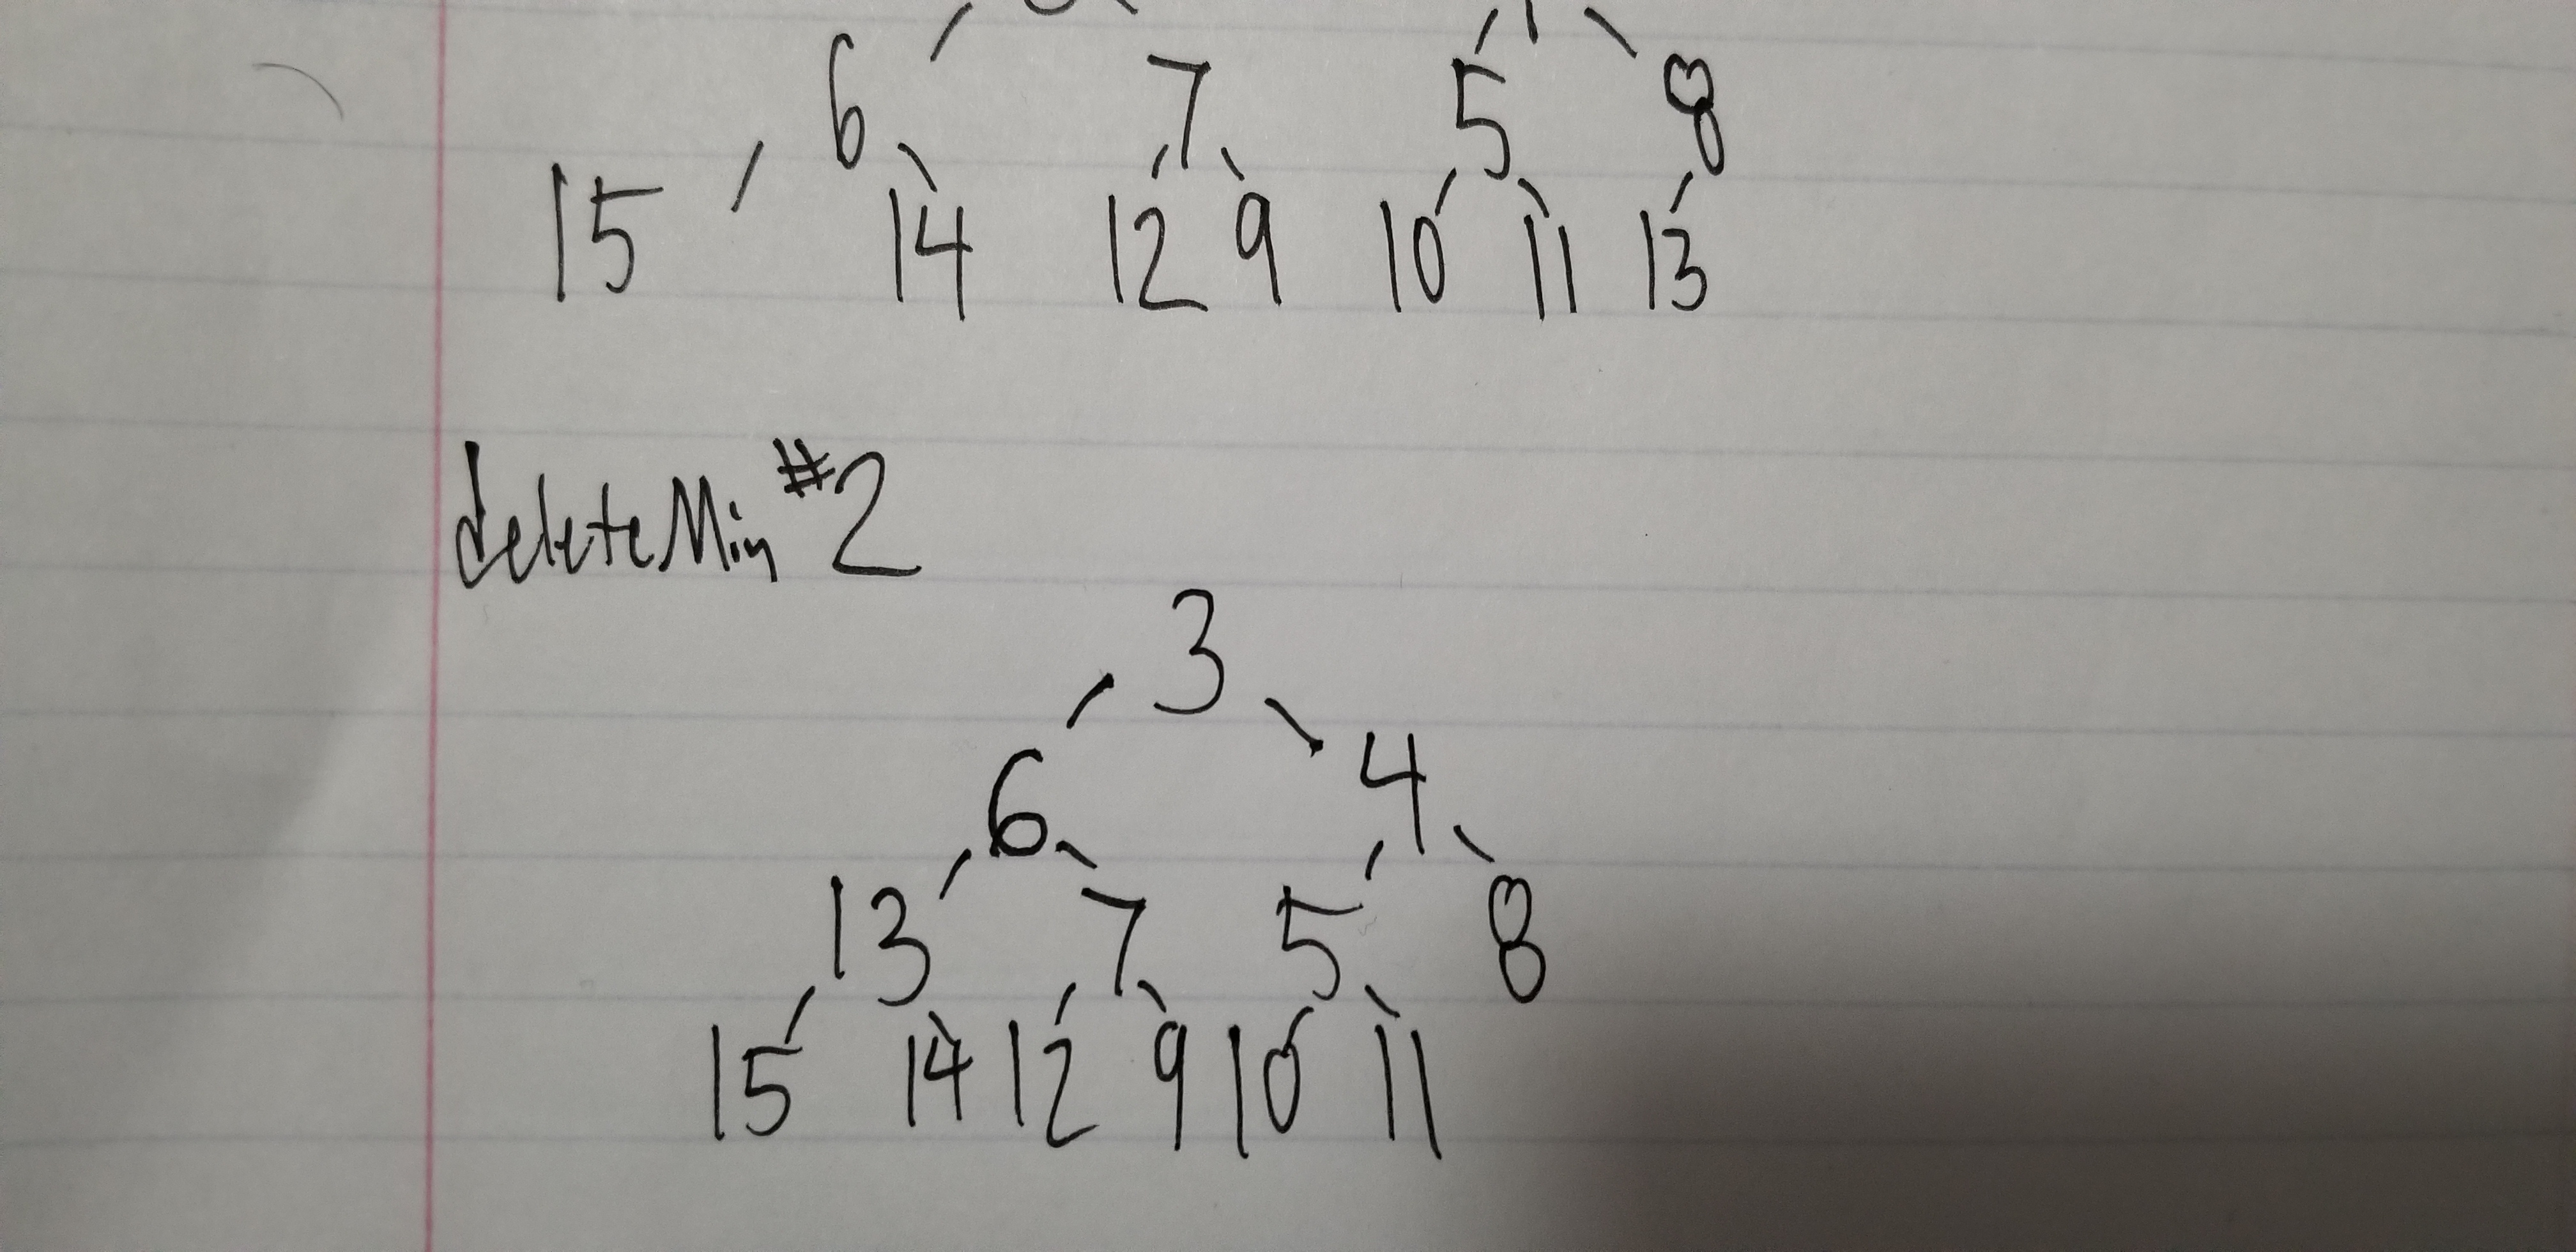 6 7 5 8
15 14 12 9 10 11 13
deleteMin #2
3
6 4
13 7 5 8
15 14 12 9 10 11